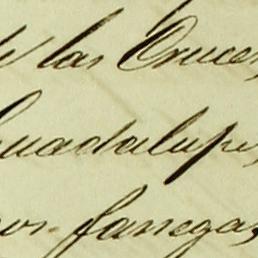 las Cruces
Guadalupe,
fanegas